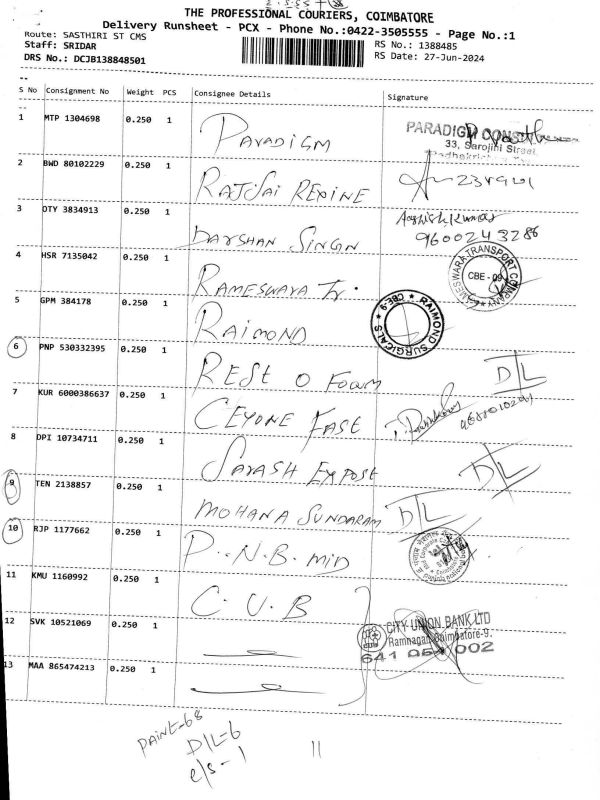 THE PROFESSIONAL COURIERS, COIMBATORE
Delivery Runsheet - PCX - Phone No.:0422-3505555 - Page No.:1
Route: SASTHIRI ST CMS
Staff: SRIDAR
DRS No.: DCJB138848501
RS No.: 1388485
RS Date: 27-Jun-2024
S No Consignment No Weight PCS Consignee Details Signature
1 MTP 1304698 0.250 1 PARADIGM
33, Sarojini Street,
2 BWD 80102229 0.250 1 RAJSAI REXINE
3 OTY 3834913 0.250 1 DARSHAN SINGH
9600243286
4 HSR 7135042 0.250 1 RAMESWARA Tr.
RAMESWARA TRANSPORT COMPANY
CBE - 09
5 GPM 384178 0.250 1 RAIMOND
RAIMOND SURGICALS CBE-9
6 PNP 530332395 0.250 1 REST O FOAM D/L
7 KUR 6000386637 0.250 1 CEYONE FAST
8 DPI 10734711 0.250 1 SARASH EXPOSE D/L
9 TEN 2138857 0.250 1 MOHANA SUNDARAM D/L
10 RJP 1177662 0.250 1 P.N.B. MID
11 KMU 1160992 0.250 1 C.U.B
12 SVK 10521069 0.250 1
CITY UNION BANK LTD
Ramnagar, Coimbatore-9.
641 054 002
13 MAA 865474213 0.250 1
PAINT-68
D/L-6
e/s-1
11